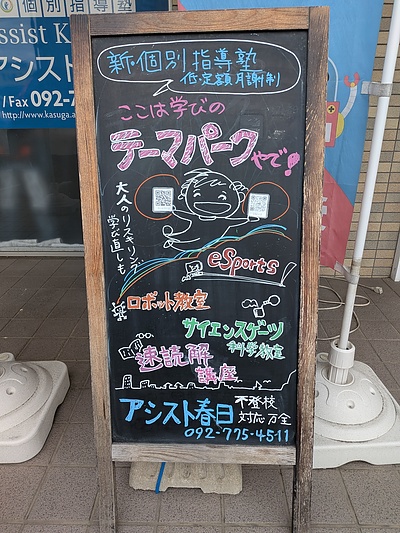 個別指導塾
ssist K
アシスト
/Fax 092-7
http://www.kasuga.a
新・個別指導塾
低定額月謝制
ここは学びの
テーマパークやで!
大人のリスキリング
学び直しも
eSports
ロボット教室
サイエンスゲーツ
科学教室
速読解
講座
アシスト春日
不登校
対応万全
092-775-4511